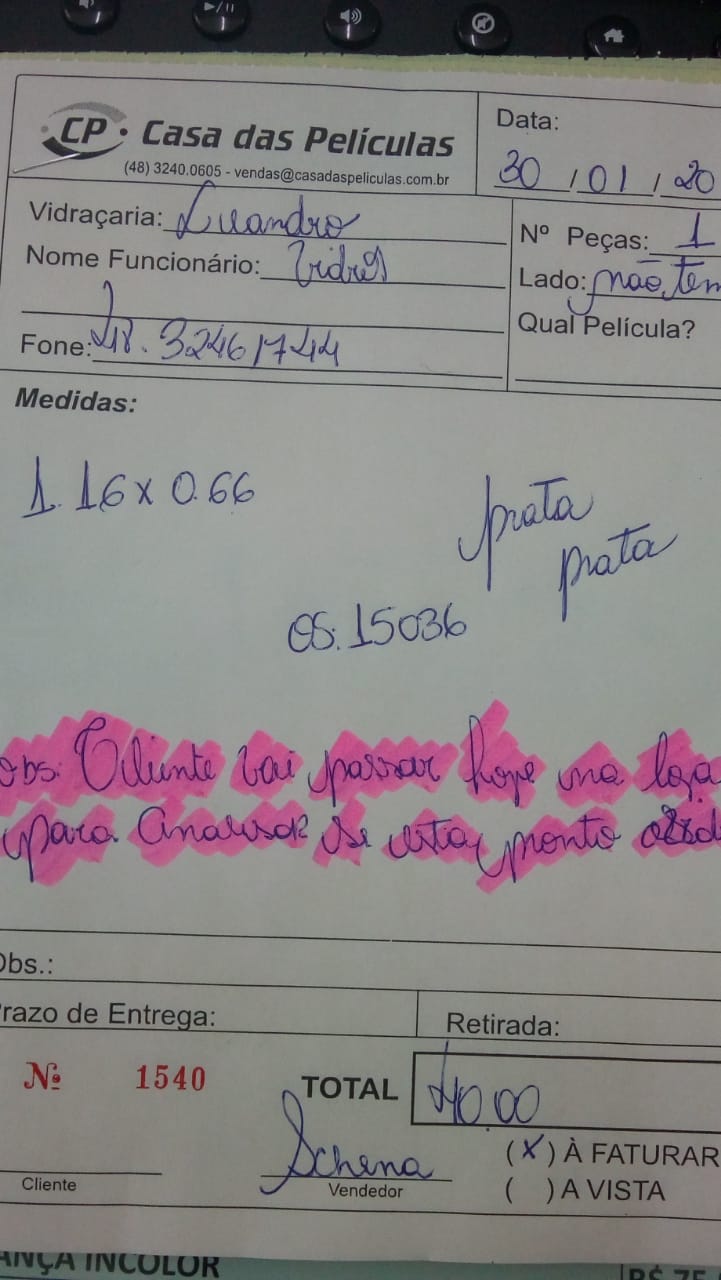 CP. Casa das Películas
(48) 3240.0605 - vendas@casadaspeliculas.com.br
Data:
30 / 01 / 20
Vidraçaria: Luandro
Nome Funcionário: Vidros
Fone: 48. 32461744
Nº Peças: 1
Lado: não tem
Qual Película?
Medidas:
1.16 x 0.66
prata
prata
OS. 15036
Obs: Cliente vai passar hoje na loja
para analisar se esta pronto
Obs.:
Prazo de Entrega:
Retirada:
Nº 1540
TOTAL 40.00
Schena
Cliente
Vendedor
(X) À FATURAR
( ) A VISTA
ANÇA INCOLOR
R$ 75